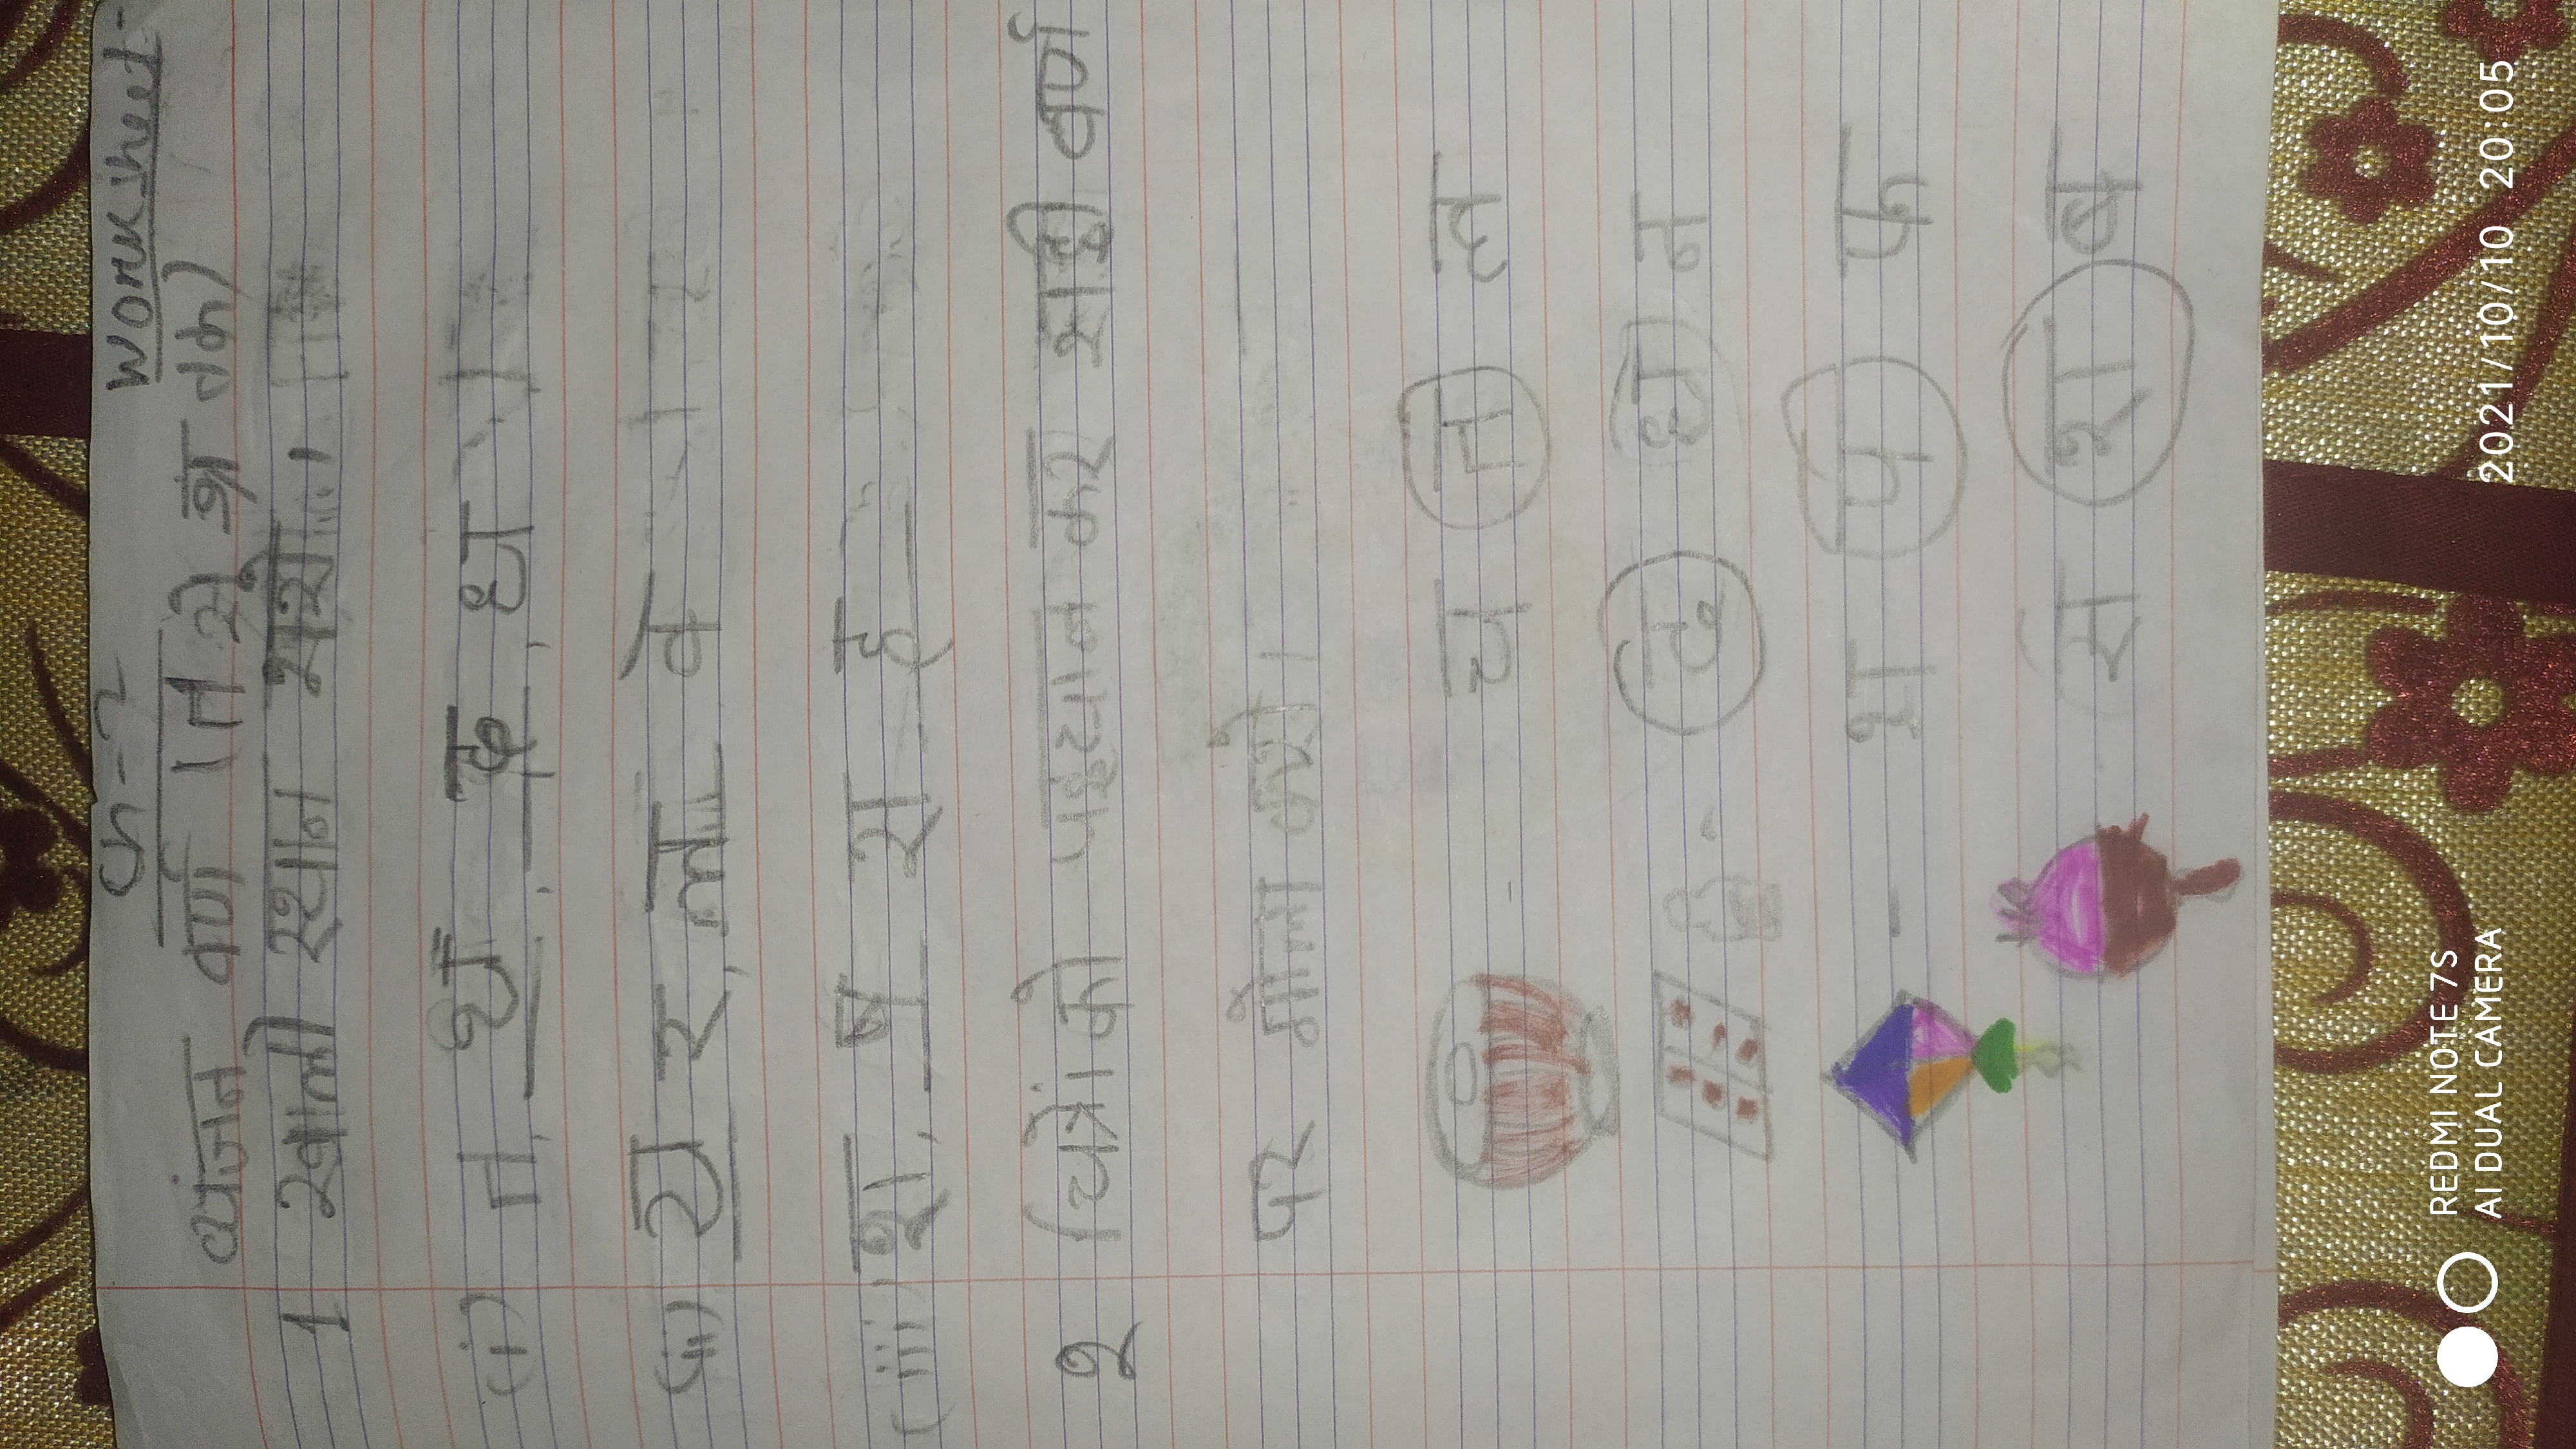 Ch-2 Worksheet-
व्यंजन वर्ण (त से ज्ञ तक)
1 खाली स्थान भरो।
(i) त, थ, द, ध
(ii) य र, ल व
(iii) श, ष स ह
2 चित्रों को पहचान कर सही वर्ण
पर गोला करो।
- च त ह
द ध न
- भ प फ
स श ष
REDMI NOTE 7S
AI DUAL CAMERA
2021/10/10 20:05